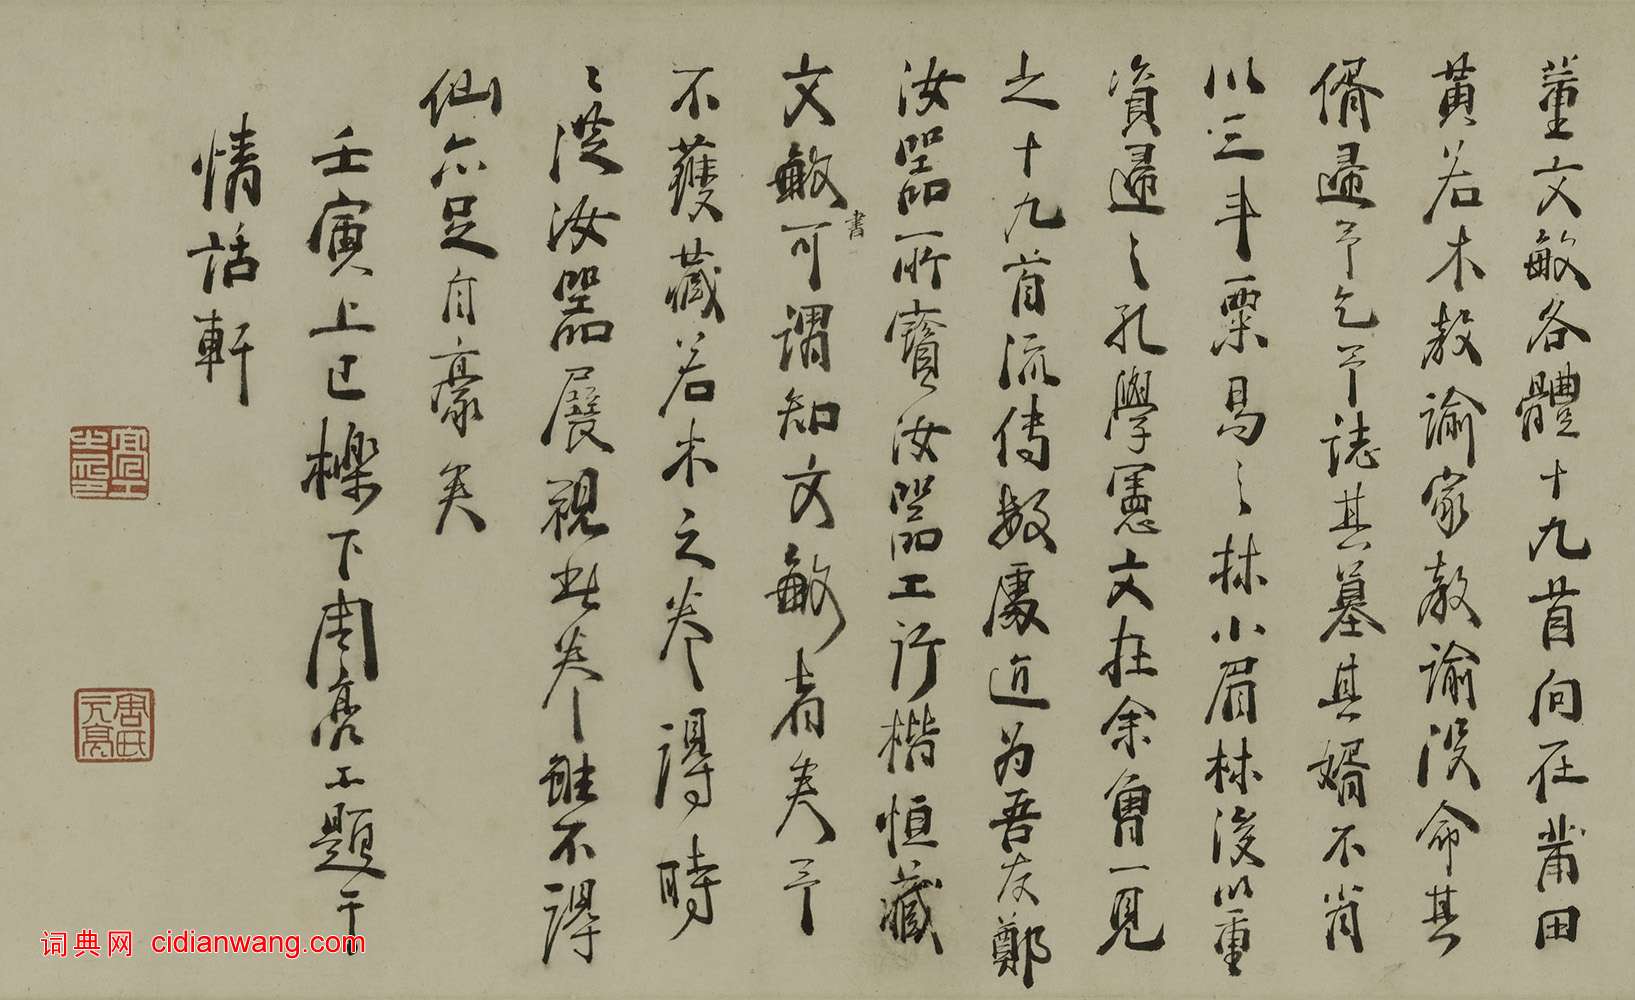 董文敏各體十九首向在莆田
黃若木教諭家教諭沒命其
婿歸予乞予誌其墓其婿不肖
以三斗粟易之林小眉林後以重
資歸之孔學憲文在余曾一見
之十九首流傳數處近為吾友鄭
汝器所寶汝器工行楷恒藏
文敏書可謂知文敏者矣予
不獲藏若木之卷得時
時從汝器展視此卷雖不得
仙亦足自豪矣
壬寅上巳櫟下周亮工題于
情話軒
周氏元亮
词典网 cidianwang.com